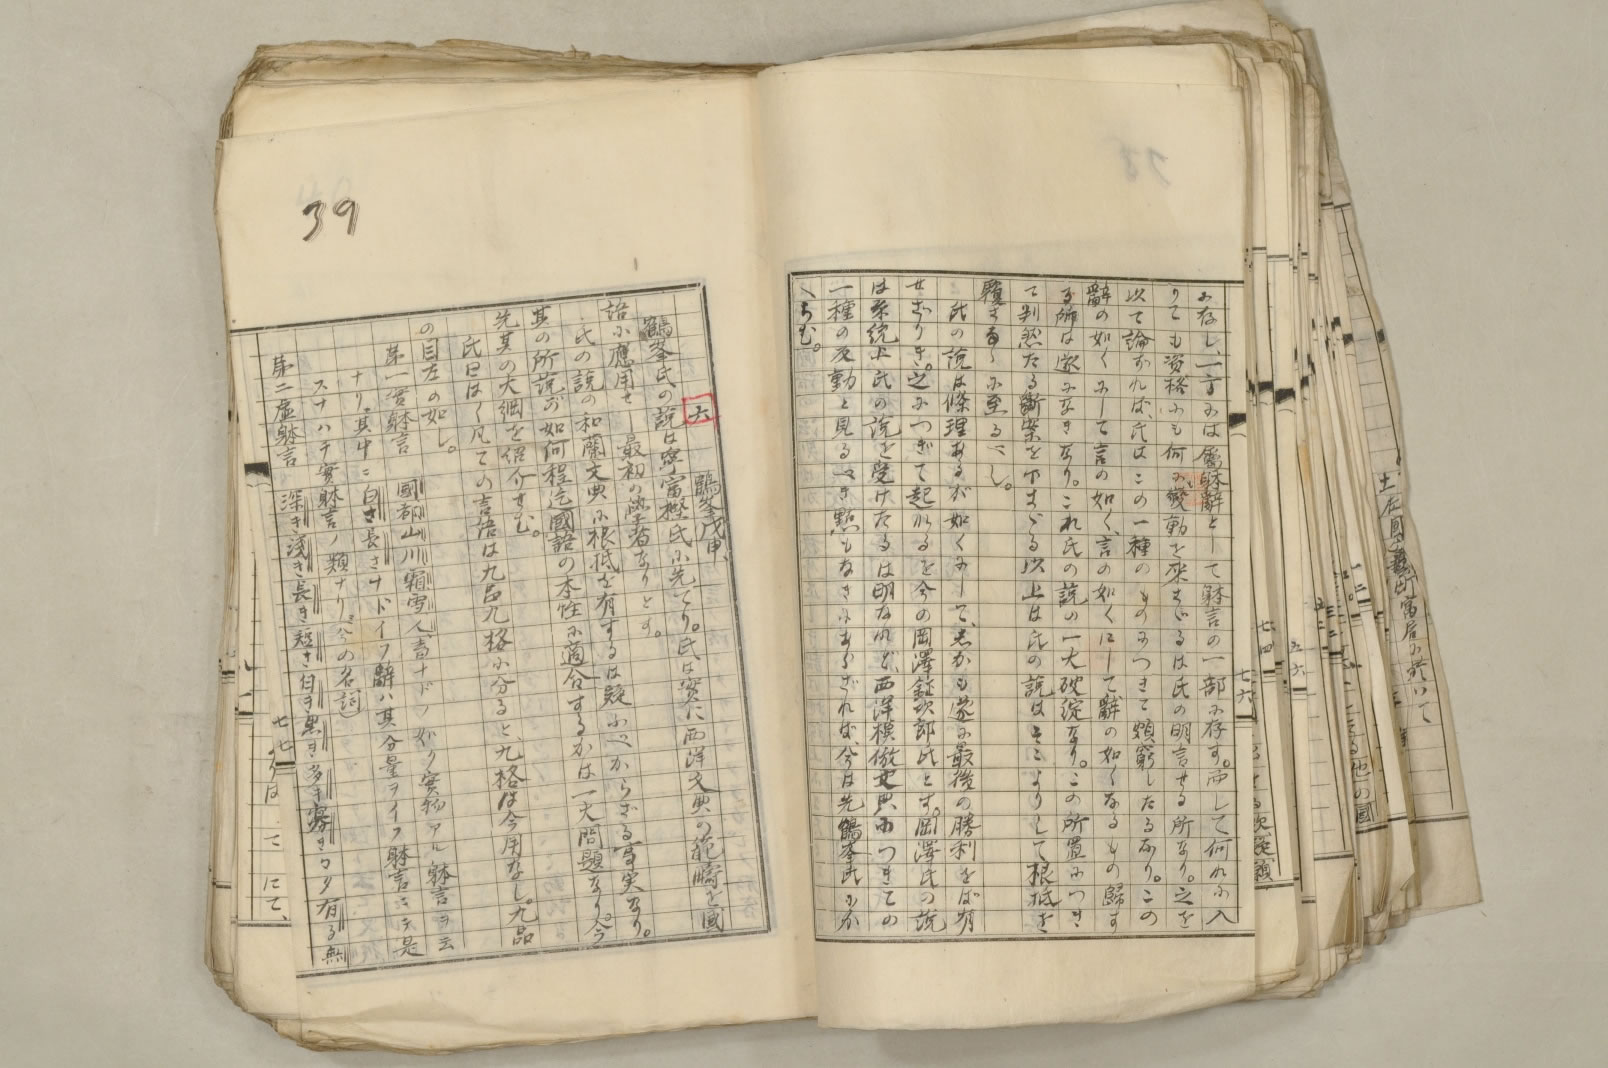 に存し、一方には虚躰辭として躰言の一部に存す。而して何れに入
りても資格にも何の変動を来さゞるは氏の明言せる所なり。之を
以て論ずれば氏はこの一種のものにつきて頗窮したるなり。この
辭の如くにして言の如く、言の如くにして辭の如くなるもの歸す
る所は遂になきなり。これ氏の説の一大破綻なり。この所置につき
て判然たる断案を下さゞる以上は氏の説はそこよりして根抵を
覆さるゝに至るべし。
氏の説は條理あるが如くにして、しかも遂に最後の勝利をば有
せざりき。之につぎて起れるを今の岡澤鉦次郎氏とす。岡澤氏の説
は系統上氏の説を受けたるは明なれど、西洋模倣文典につきての
一種の反動と見るべき點もなきにあらざれば、今は先鶴峯氏にか
へらむ。
七六
39
六 鶴峯戊申、
鶴峯氏の説は寧富樫氏に先てり。氏は実に西洋文典の範疇を国
語に應用せし最初の学者なりとす。
氏の説の和蘭文典に根抵を有するは疑ふべからざる事実なり。
其の所説が如何程迄國語の本性に適合するかは一大問題なり。今
先其の大綱を紹介せむ。
氏曰はく凡ての言語は九品九格に分ると、九格は今用なし。九品
の目左の如し。
第一實躰言 國郡山川霜雪人畜ナドノ如ク実物アル躰言ヲ云
ナリ、其中ニ白さ長さナドイフ辭ハ其分量ヲイフ躰言ニテ是
スナハチ実躰言ノ類ナリ(今の名詞)
第二虚躰言 深き浅き長き短き白き黒き多き寡きマタ有る無
七七